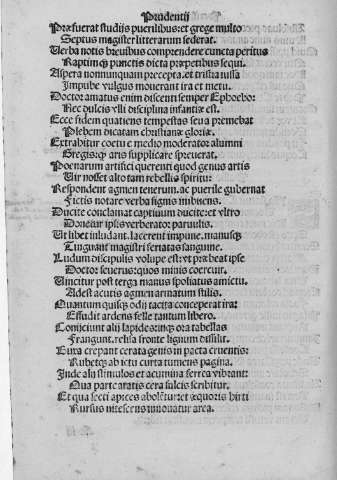 Prudentij
Præfuerat studijs puerilibus: et grege multo
Septus magister litterarum sederat.
Uerba notis breuibus comprendere cuncta peritus
Raptimqꝫ punctis dicta præpetibus sequi.
Aspera nonnunquam precepta: et tristia iussa
Impube vulgus mouerant ira et metu.
Doctor amarus enim discenti semper Ephoebo:
Nec dulcis vlli disciplina infantiæ est.
Ecce fidem quatiens tempestas seua premebat
Plebem dicatam christianæ gloriæ.
Extrahitur coetu e medio moderator alumni
Gregis: qꝫ aris supplicare spreuerat.
Poenarum artifici querenti quod genus artis
Uir nosset alto tam rebellis spiritu:
Respondent agmen tenerum. ac puerile gubernat
Fictis notare verba signis imbuens.
Ducite conclamat captiuum ducite: et vltro
Donetur ipsis verberator paruulis.
Ut libet inludant. lacerent impune. manusqꝫ
Tinguant magistri feriatas sanguine.
Ludum discipulis volupe est: vt præbeat ipse
Doctor seuerus: quos nimis coercuit.
Uincitur post terga manus spoliatus amictu.
Adest acutis agmen armatum stilis.
Quantum quisqꝫ odij tacita conceperat ira:
Effudit ardens felle tantum libero.
Conijciunt alij lapides: inqꝫ ora tabellas
Frangunt. relisa fronte lignum dissilit.
Eura crepant cerata genis in pacta cruentis:
Rubetqꝫ ab ictu curta tumens pagina.
Inde alij stimulos et acumina ferrea vibrant:
Qua parte aratis cera sulcis scribitur.
Et qua secti apices abolentur: et æquoris hirti
Rursus nitescens innouatur area.